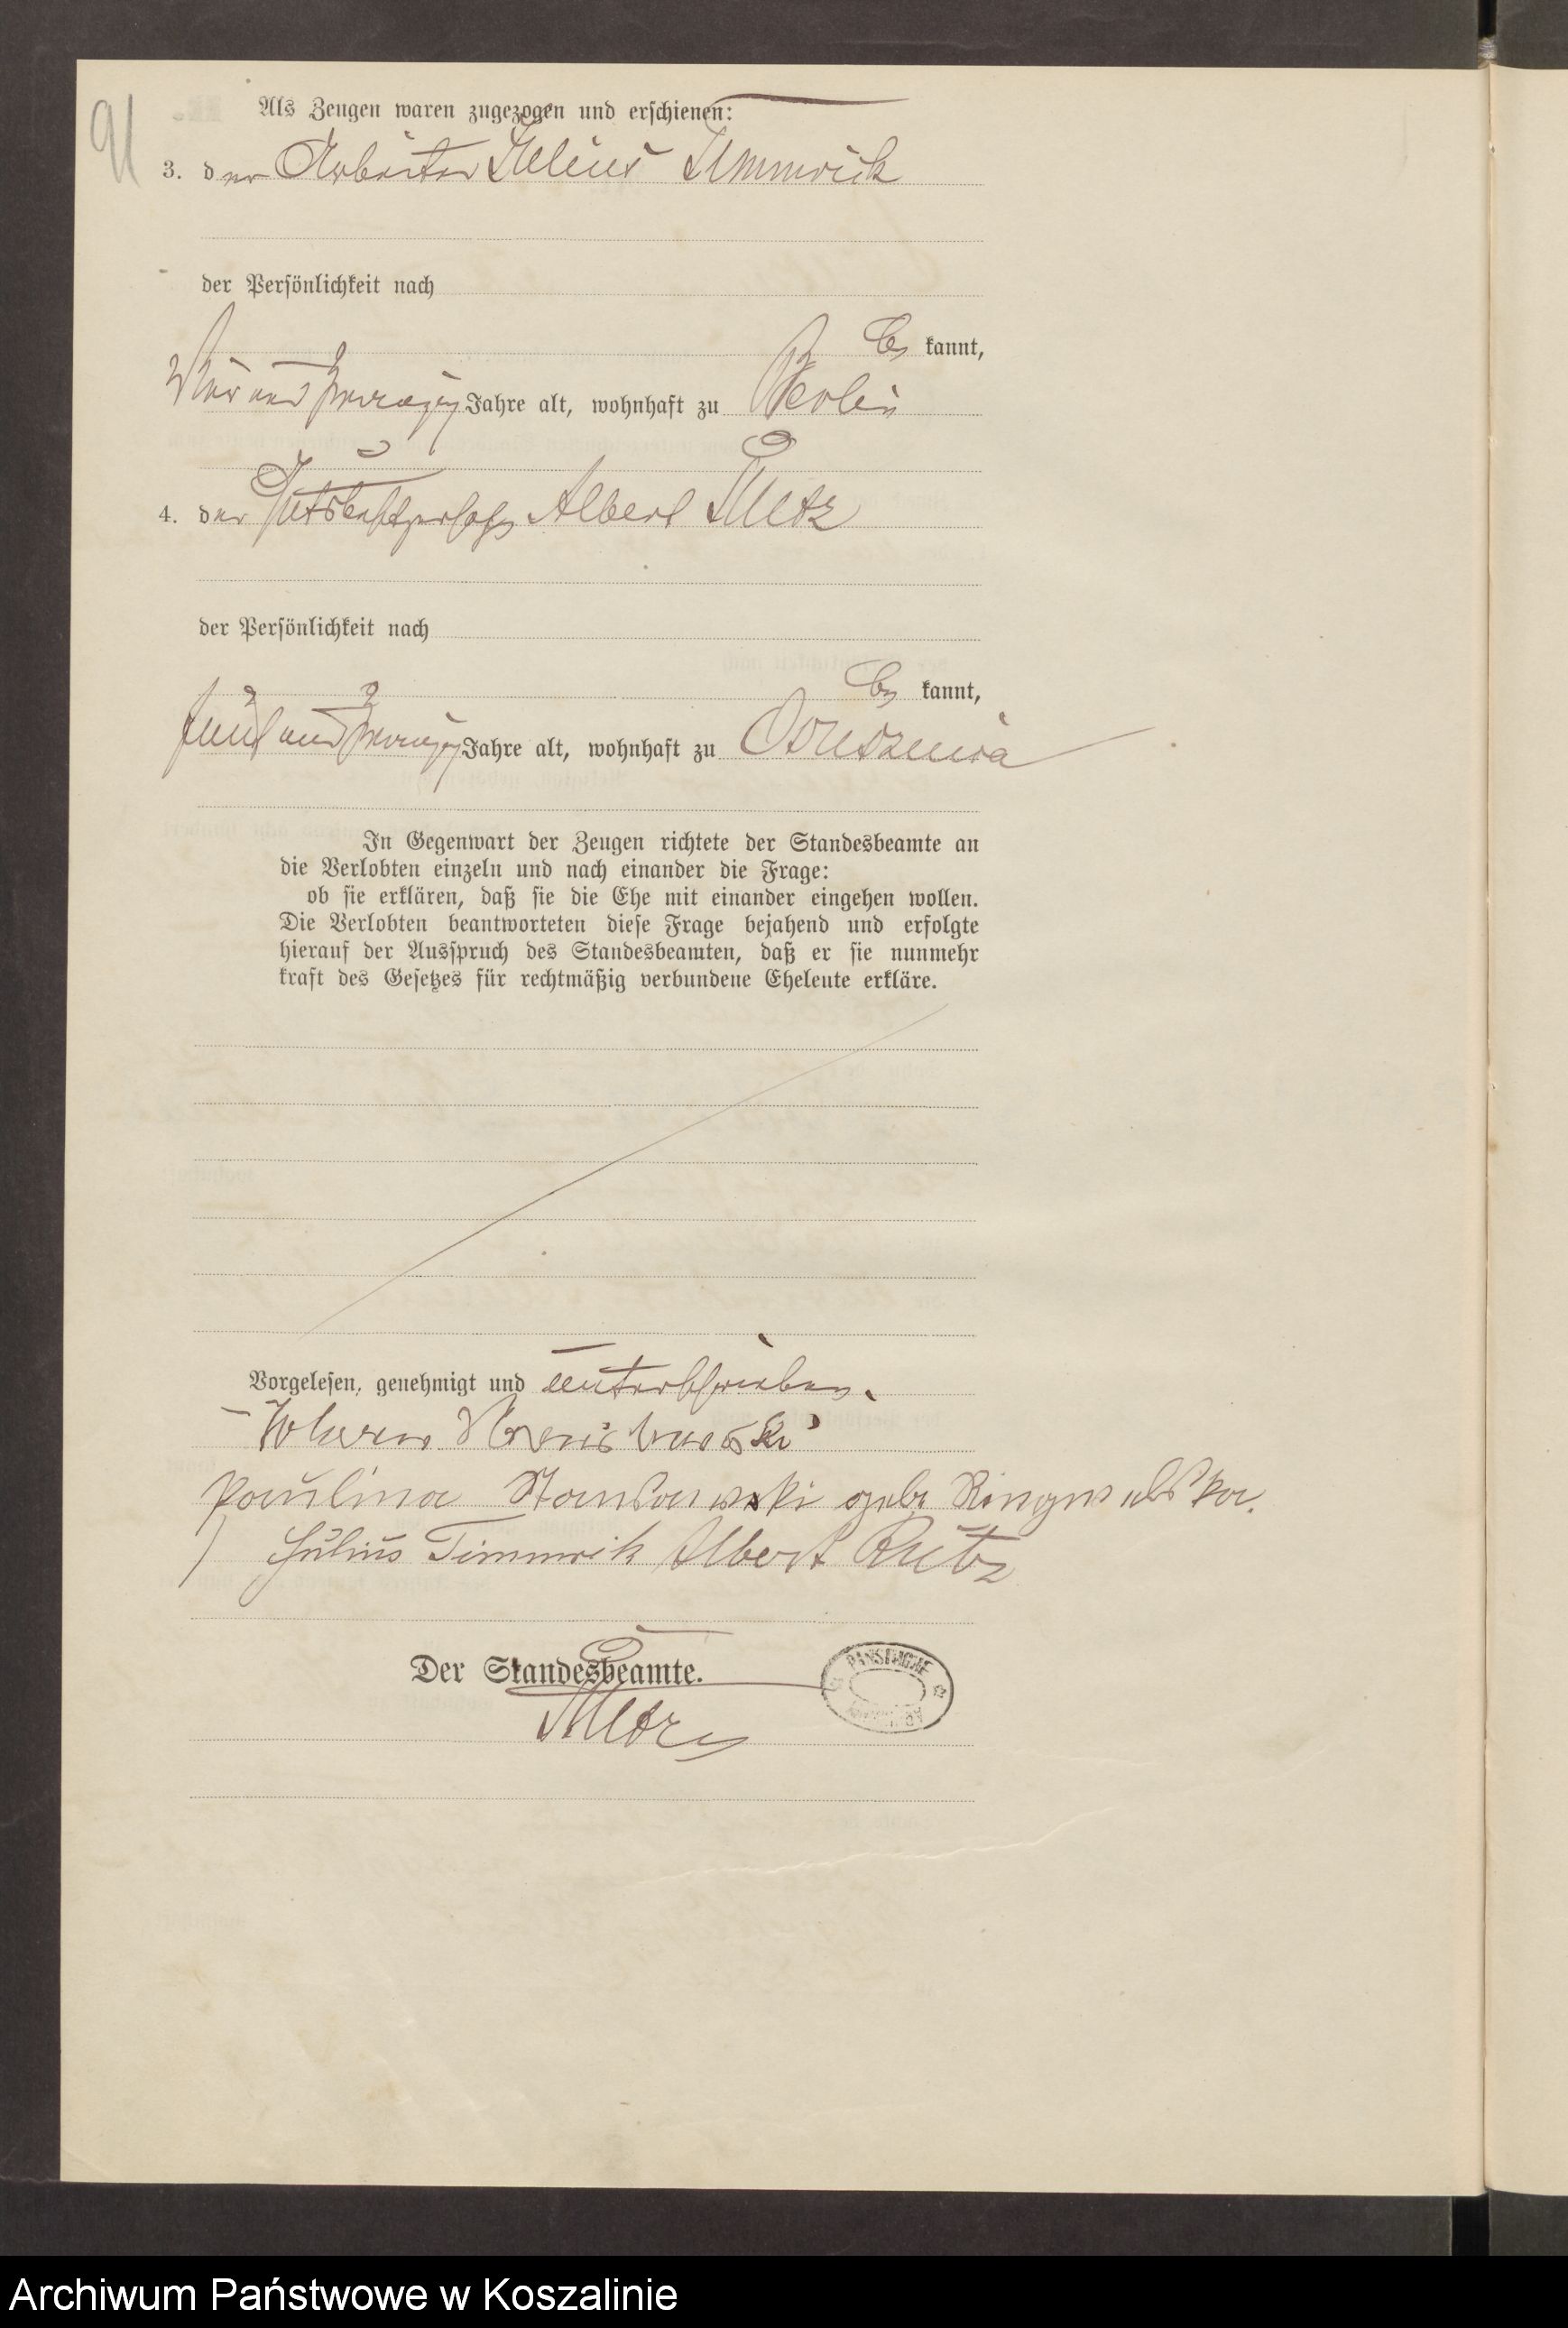 91
Als Zeugen waren zugezogen und erschienen:
3. der Arbeiter Julius Timmrick
der Persönlichkeit nach
be kannt,
vier und zwanzig Jahre alt, wohnhaft zu Berlin
4. der Albert Rutz
der Persönlichkeit nach
be kannt,
fünf und zwanzig Jahre alt, wohnhaft zu
In Gegenwart der Zeugen richtete der Standesbeamte an
die Verlobten einzeln und nach einander die Frage:
ob sie erklären, daß sie die Ehe mit einander eingehen wollen.
Die Verlobten beantworteten diese Frage bejahend und erfolgte
hierauf der Ausspruch des Standesbeamten, daß er sie nunmehr
kraft des Gesetzes für rechtmäßig verbundene Eheleute erkläre.
Vorgelesen, genehmigt und unterschrieben.
Paulina geb.
Julius Timmrik Albert Rutz
Der Standesbeamte.
Rutz
Archiwum Państwowe w Koszalinie